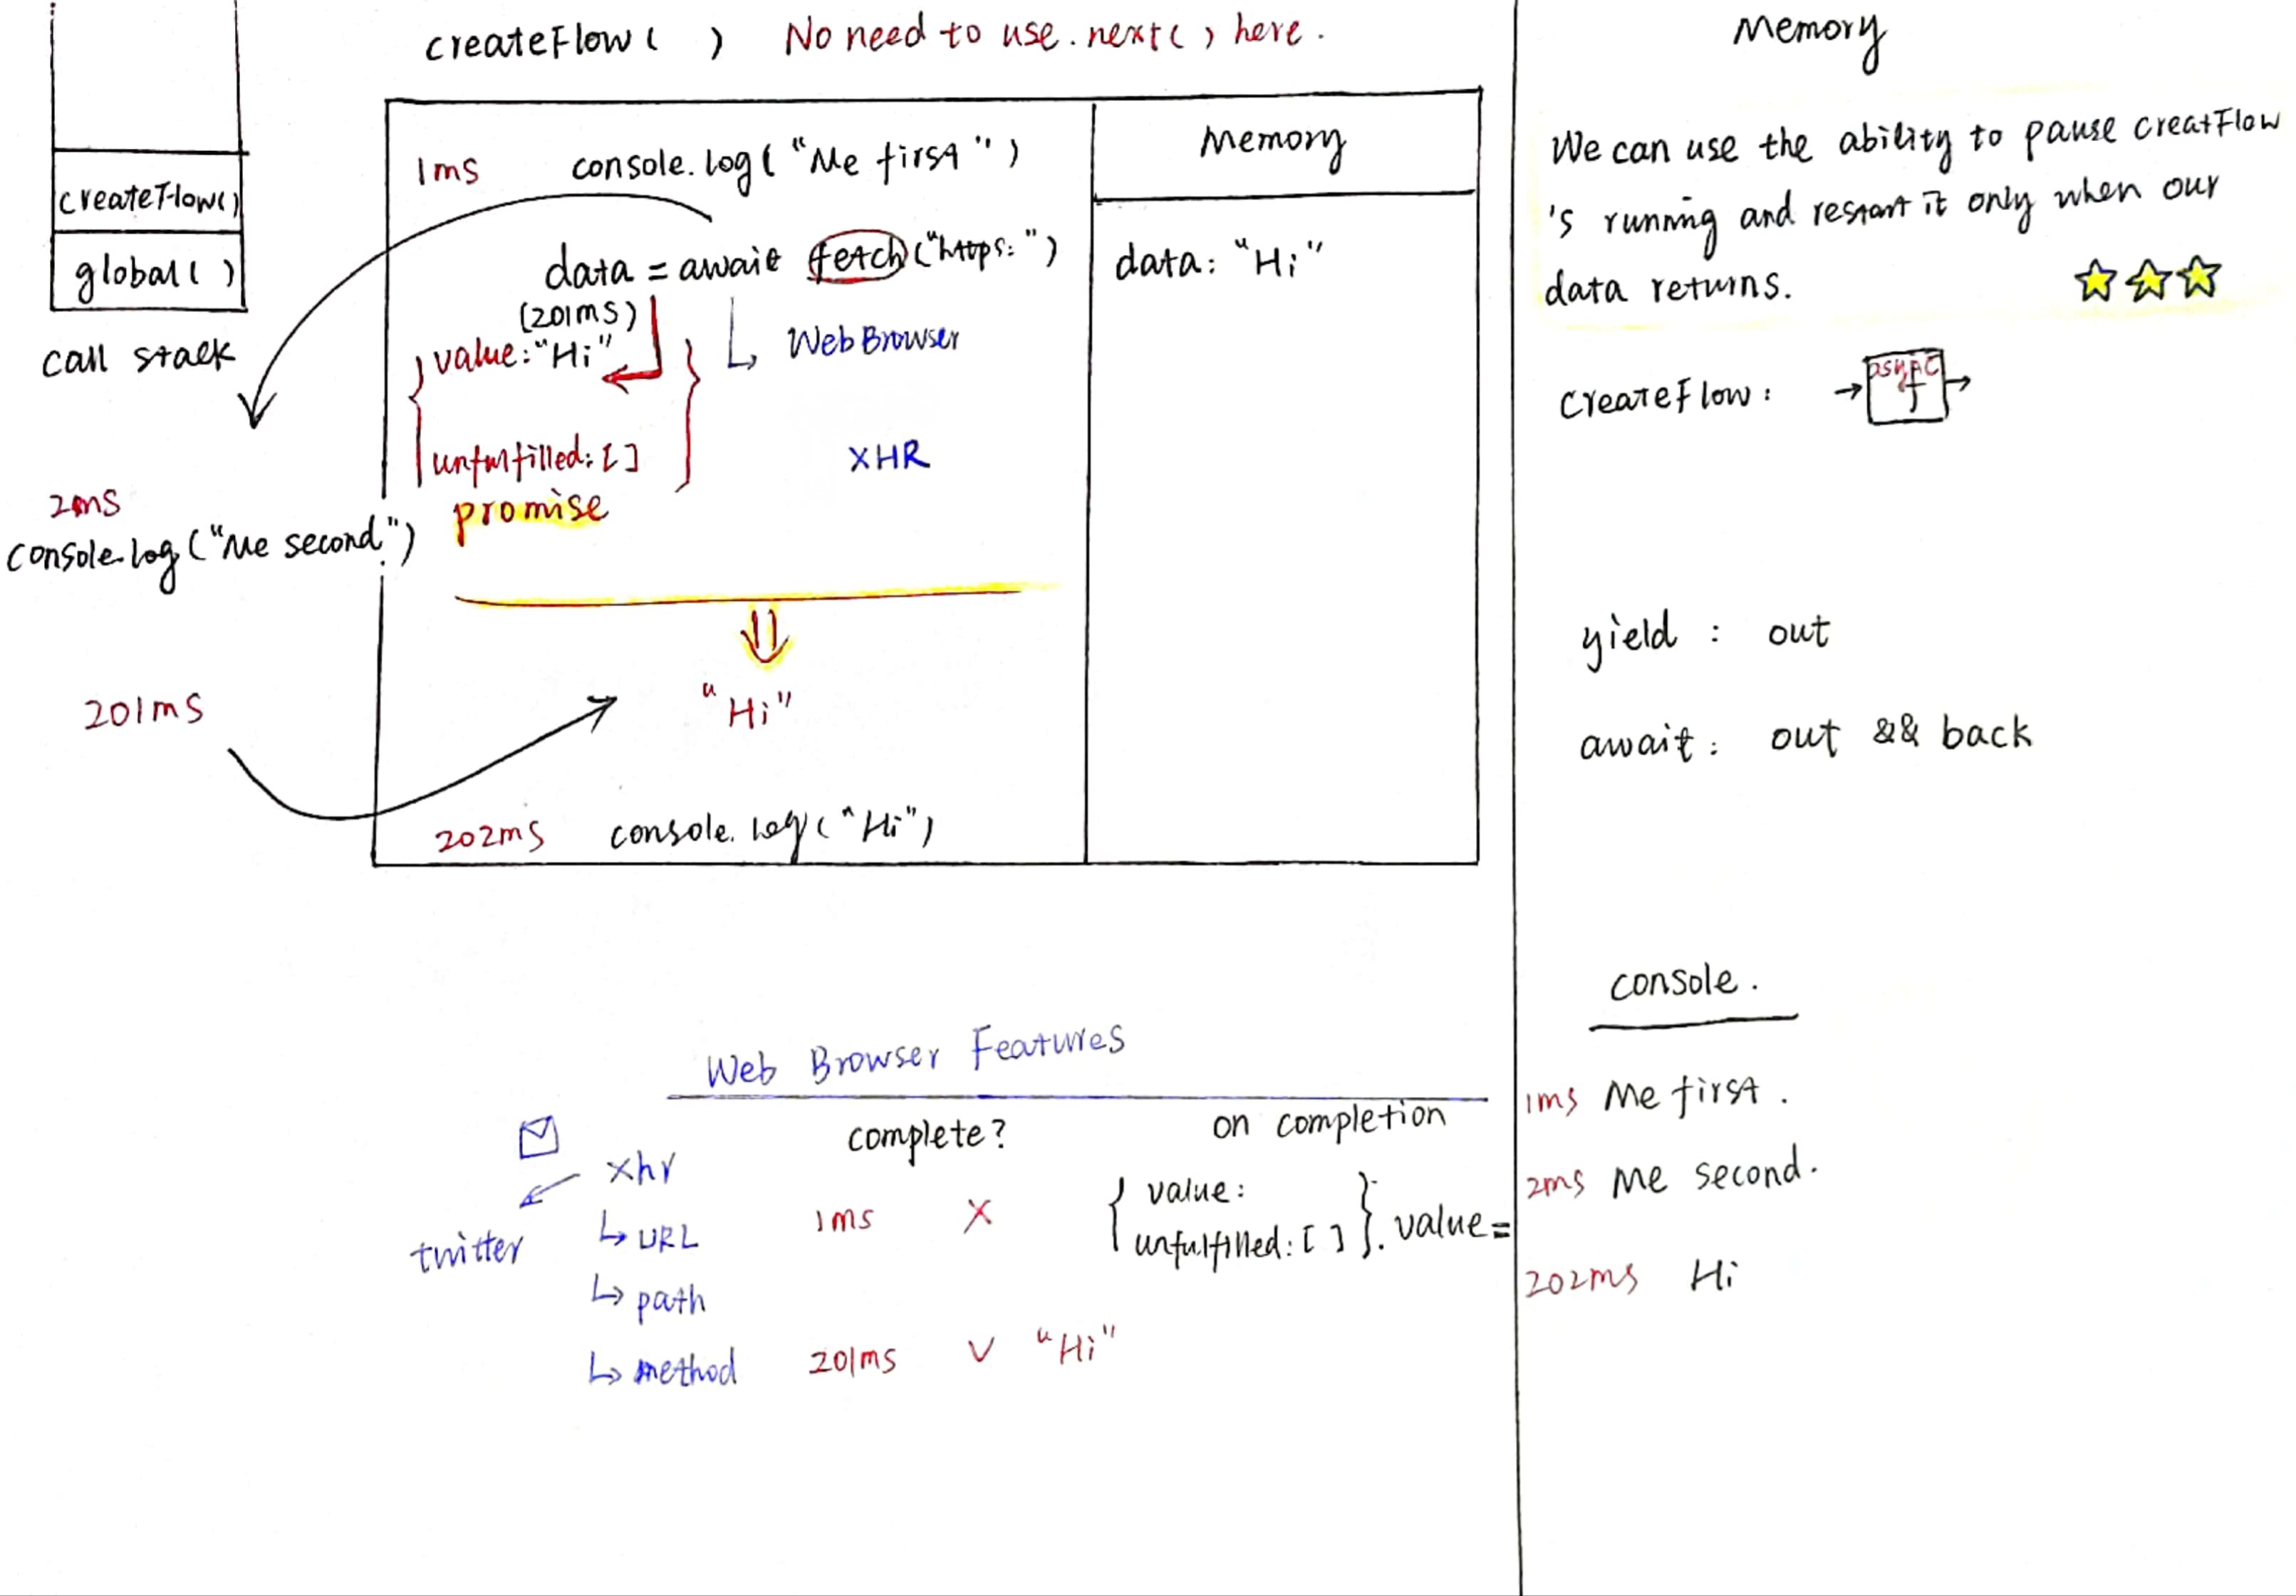 createFlow( ) No need to use .next() here.
createFlow()
global( )
call stack
1ms console.log("Me first")
data = await fetch("https:")
(201ms)
value: "Hi"
Web Browser
unfulfilled: [ ]
XHR
promise
2ms
console.log("Me second")
"Hi"
201ms
202ms console.log("Hi")
Memory
data: "Hi"
Memory
We can use the ability to pause creatFlow
's running and restart it only when our
data returns.
createFlow: async f
yield : out
await : out && back
console.
1ms Me first.
2ms Me second.
202ms Hi
Web Browser Features
complete? on completion
xhr
twitter
URL
path
method
1ms X
{ value:
unfulfilled: [ ] }. value =
201ms V "Hi"